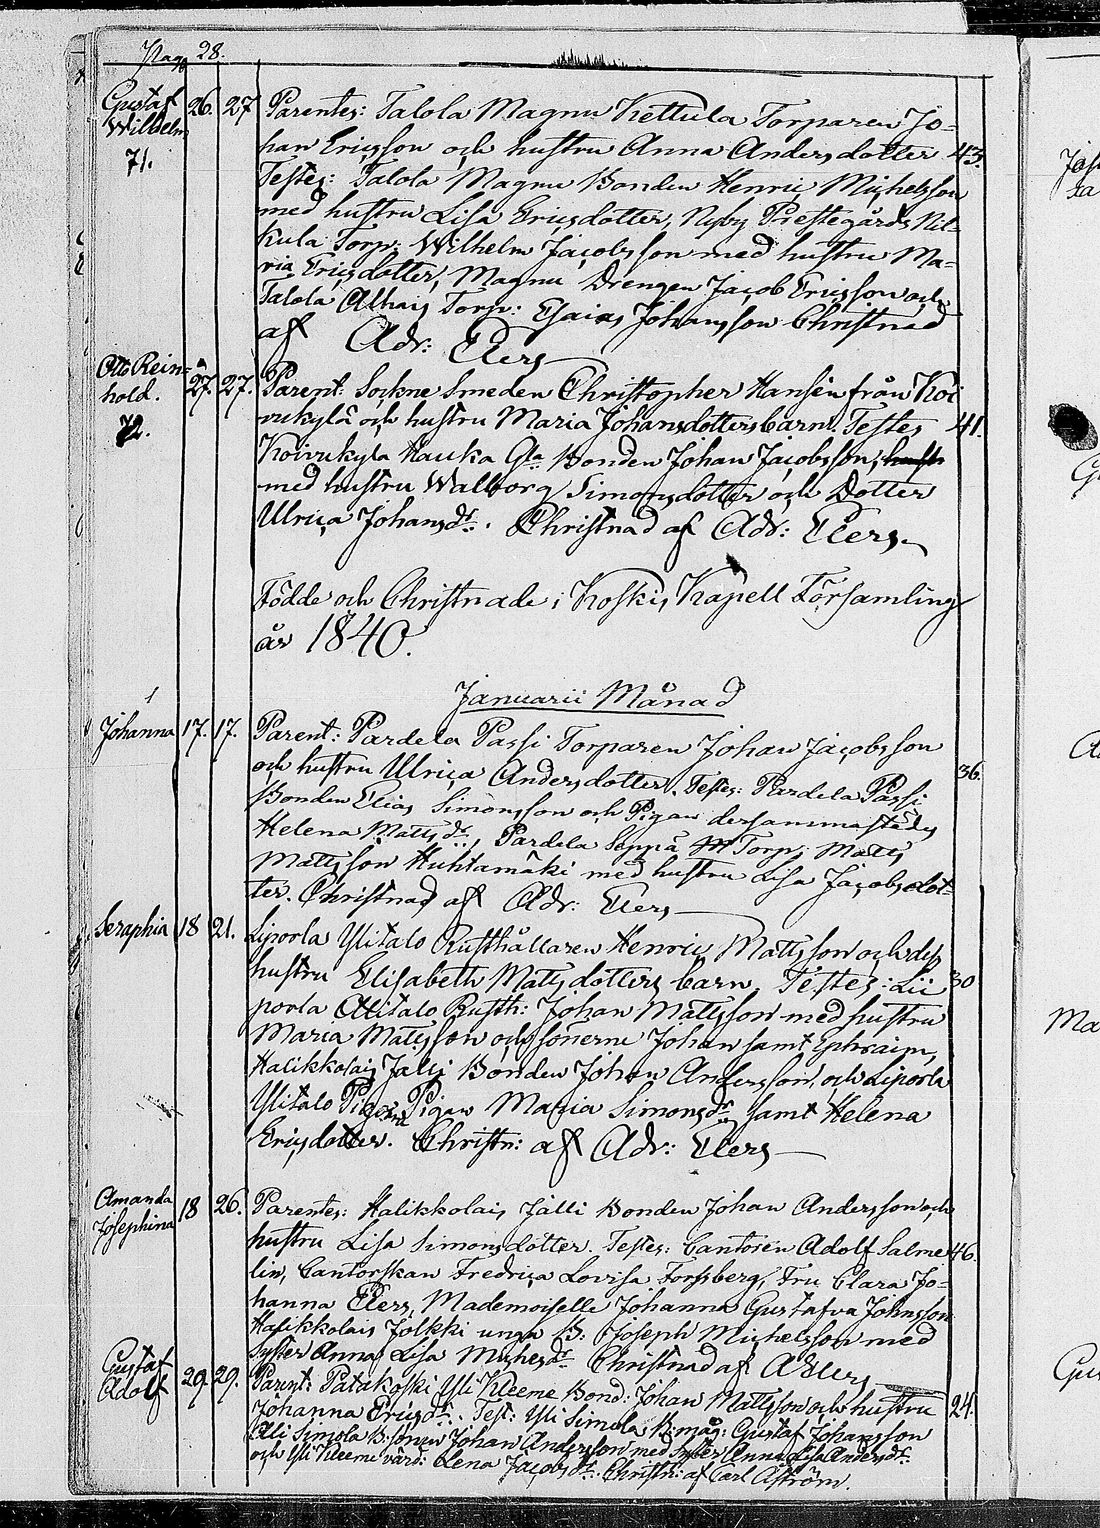 Pag. 28.
Gustaf 26. 27 Parentes: Talola Magnu Kettula Torparen Jo-
Wilhelm han Ericsson och hustru Anna Andersdotter 43.
71. Testes: Talola Magnu Bonden Henric Michelsson
med hustru Lisa Ericsdotter, Nyby Prestegårds Nil-
kula Torp: Wilhelm Jacobsson med hustru Ma-
ria Ericsdotter, Magnu Drengen Jacob Ericsson och
Talola Alhais Torp: Esaias Johansson Christnad
af Adr: Elers
Otto Rein- 27. 27. Parent: Sockne Smeden Christopher Hansén från Koi
hold. vukylä och hustru Maria Johansdotters barn. Testes 41.
72. Koivukyla Hauka Gla Bonden Johan Jacobsson, hustr
med hustru Walborg Simonsdotter och Dotter
Ulrica Johansdr. Christnad af Adr: Elers.
Födde och Christnade i Koskis Kapell Församling
år 1840.
Januarii Månad
1
Johanna 17. 17. Parent: Pardela Passi Torparen Johan Jacobsson
och hustru Ulrica Andersdotter. Testes: Pardela Passi 36.
Bonden Elias Simonsson och Pigan dersammastädes
Helena Mattsdr, Pardela Seppä Torp: Matts
Mattsson Huhtamäki med hustru Lisa Jacobsdot-
ter. Christnad af Adr: Elers
Seraphia 18 21. Liporla Ylitalo Rusthållaren Henric Mattsson och dess
hustru Elisabeth Mattsdotters barn, Testes: Lii 30
porla Alitalo Rusth: Johan Mattsson med hustru
Maria Mattsson och sönerne Johan samt Ephraim,
Halikkolais Jälli Bonden Johan Andersson, och Liporla
Ylitalo Pigorna Pigan Maria Simonsdr samt Helena
Ericsdotter. Christn: af Adr: Elers
Amanda 18 26. Parentes: Halikkolais Jälli Bonden Johan Andersson och
Josephina hustru Lisa Simonsdotter. Testes: Cantoren Adolf Salme 46.
lin, Cantorskan Fredrica Lovisa Forsberg, Fru Clara Jo-
hanna Elers, Mademoiselle Johanna Gustafva Johnsson
Halikkolais Jolkki unga B: Joseph Michelsson med
Syster Anna Lisa Michelsdr Christnad af A Elers
Gustaf 29. 29. Parent: Patakoski Yli Kleeme Bond: Johan Mattsson och hustru
Adolf Johanna Ericsdr. Test: Yli Simola B. måg: Gustaf Johansson 24.
Alli Simola B: sonen Johan Andersson med Syster Anna Lisa Andersdr
och Yli Kleeme värd: Lena Jacobsdr. Christn: af Carl Aström.